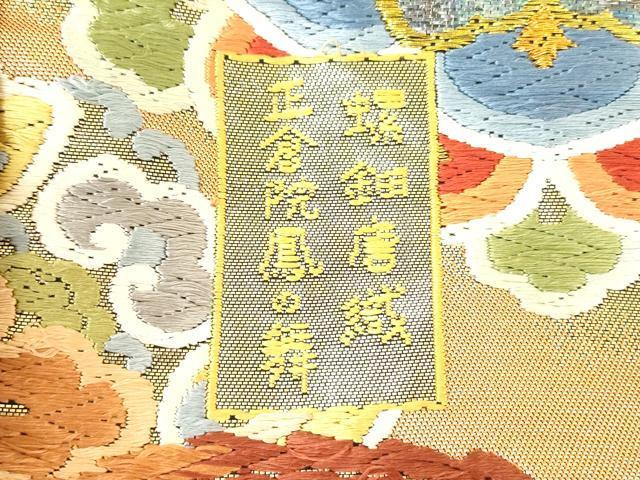 螺鈿唐織
正倉院鳳の舞